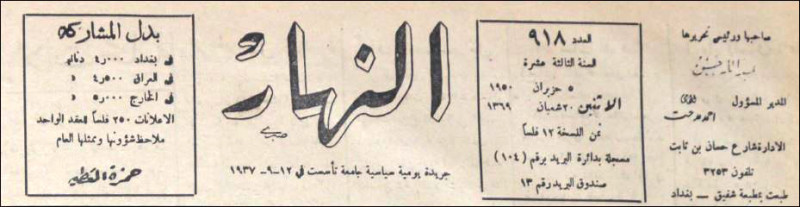 صاحبها ورئيس تحريرها
المدير المسؤول
احمد مدحت
الادارة شارع حسان بن ثابت
تلفون ٣٢٥٣
طبعت بمطبعة شفيق — بغداد
العدد ٩١٨
السنة الثالثة عشرة
٥ حزيران ١٩٥٠
الاثنين ٢٠ شعبان ١٣٦٩
ثمن النسخة ١٢ فلساً
مسجلة بدائرة البريد برقم (١٠٤)
صندوق البريد رقم ١٣
النهار
صبري
جريدة يومية سياسية جامعة تأسست في ١٢-٩-١٩٣٧
بدل المشاركة
في بغداد ٤٫٠٠٠ دنانير
في العراق ٤٫٥٠٠ »
في الخارج ٥٫٠٠٠ »
الاعلانات ٢٥٠ فلساً للعقد الواحد
ملاحظ شؤونها وممثلها العام
حمزة